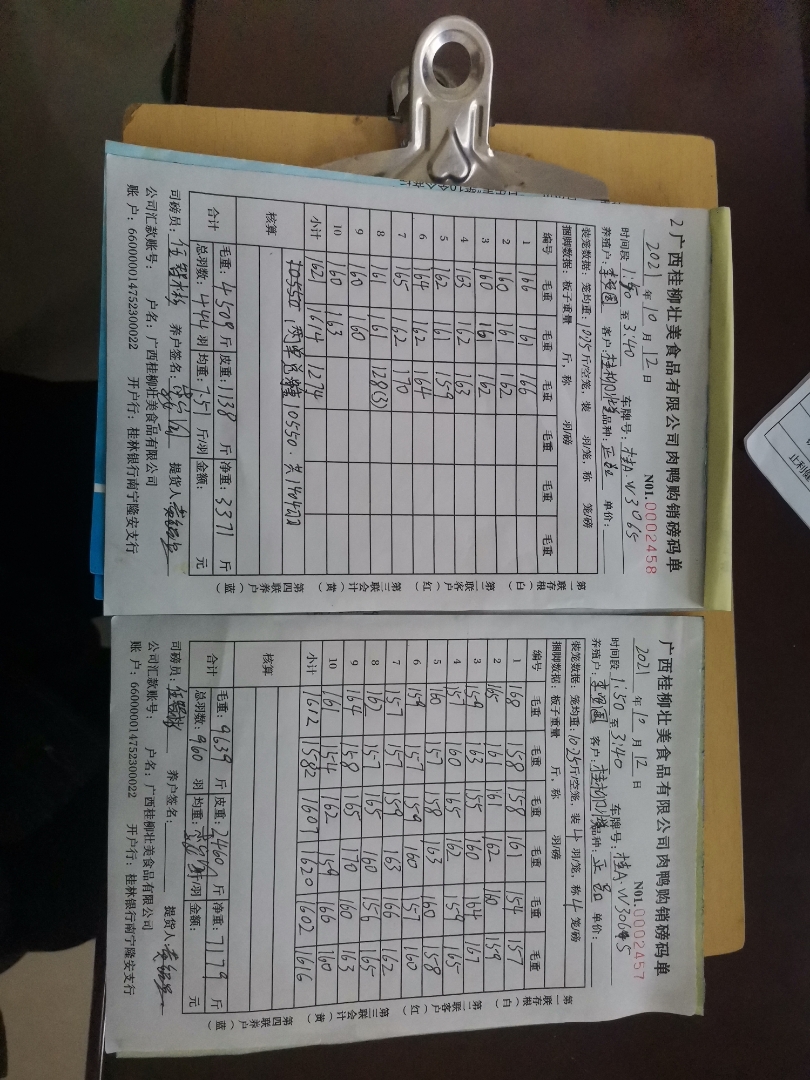 2广西桂柳壮美食品有限公司肉鸭购销磅码单
2021 年 10 月 12 日 NO1.0002458
时间段 1:50 至 3:40 车牌号: 桂A·W3065
养殖户: 客户: 桂柳 品种: 正品 单价:
装笼数据: 笼均重: 10.25 斤/空笼, 装 羽/笼, 称 笼/磅
捆脚数据: 板子重量 斤, 称 羽/磅
编号 毛重 毛重 毛重 毛重 毛重 毛重
1 166 161 166
2 160 161 162
3 160 161 162
4 163 162 163
5 162 161 159
6 164 162 164
7 165 162 170
8 161 161 128(3)
9 160 160
10 160 163
小计 1621 1614 1274
核算 10550 10550. 共1404
合计 毛重: 4509 斤 皮重: 1138 斤 净重: 3371 斤
总羽数: 444 羽 均重: 7.51 斤/羽 金额: 元
司磅员: 养户签名: 提货人:
公司汇款账号: 户名: 广西桂柳壮美食品有限公司
账 户: 660000014752300022 开户行: 桂林银行南宁隆安支行
第一联存根(白) 第二联客户(红) 第三联会计(黄) 第四联养户(蓝)
广西桂柳壮美食品有限公司肉鸭购销磅码单
2021 年 10 月 12 日 NO1.0002457
时间段 1:50 至 3:40 车牌号: 桂A·W3065
养殖户: 客户: 桂柳 品种: 正品 单价:
装笼数据: 笼均重: 10.25 斤/空笼, 装 4 羽/笼, 称 4 笼/磅
捆脚数据: 板子重量 斤, 称 羽/磅
编号 毛重 毛重 毛重 毛重 毛重 毛重
1 168 158 158 161 154 157
2 165 161 161 162 160 159
3 159 163 155 160 164 167
4 157 160 165 162 159 165
5 160 157 158 163 160 158
6 159 157 159 160 157 160
7 157 157 159 163 166 162
8 162 157 165 160 156 165
9 164 158 165 170 160 163
10 161 154 162 159 166 160
小计 1612 1582 1607 1620 1602 1616
核算
合计 毛重: 9639 斤 皮重: 2460 斤 净重: 7179 斤
总羽数: 960 羽 均重: 斤/羽 金额: 元
司磅员: 养户签名: 提货人:
公司汇款账号: 户名: 广西桂柳壮美食品有限公司
账 户: 660000014752300022 开户行: 桂林银行南宁隆安支行
第一联存根(白) 第二联客户(红) 第三联会计(黄) 第四联养户(蓝)